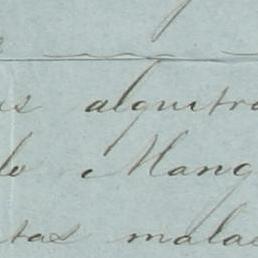 as alquitra
do Mang
tas malas